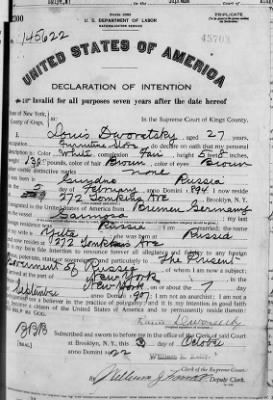 TRIPLICATE
U. S. DEPARTMENT OF LABOR
NATURALIZATION SERVICE
145622
45703
UNITED STATES OF AMERICA
DECLARATION OF INTENTION
Invalid for all purposes seven years after the date hereof
of New York,
County of Kings,
In the Supreme Court of Kings County.
I, Louis Dworetsky, aged 27 years,
occupation Furniture Store, do declare on oath that my personal
description is: Color White, complexion Fair, height 5 feet 8 inches,
pounds, color of hair Brown, color of eyes Brown
visible distinctive marks none
Russia
day of February, anno Domini 1894; I now reside
272 Tompkins Ave, Brooklyn, N. Y.
United States of America from Bremen Germany
my last
residence was Russia; I am married; the name
is Russia
reside at 272 Tompkins Ave
It is my bona fide intention to renounce forever all allegiance and fidelity to any foreign
particularly to The Present
Government of Russia, of whom I am now a subject;
arrived at the port of New York
New York, on or about the 7 day
September, anno Domini 1907; I am not an anarchist; I am not a
polygamist nor a believer in the practice of polygamy; and it is my intention in good faith
to become a citizen of the United States of America and to permanently reside therein:
SO HELP ME GOD.
Louis Dworetsky
Subscribed and sworn to before me in the office of the Clerk of said Court
[SEAL]
at Brooklyn, N. Y., this 3 day of October
anno Domini 1922
Clerk of the Supreme Court.
Deputy Clerk.